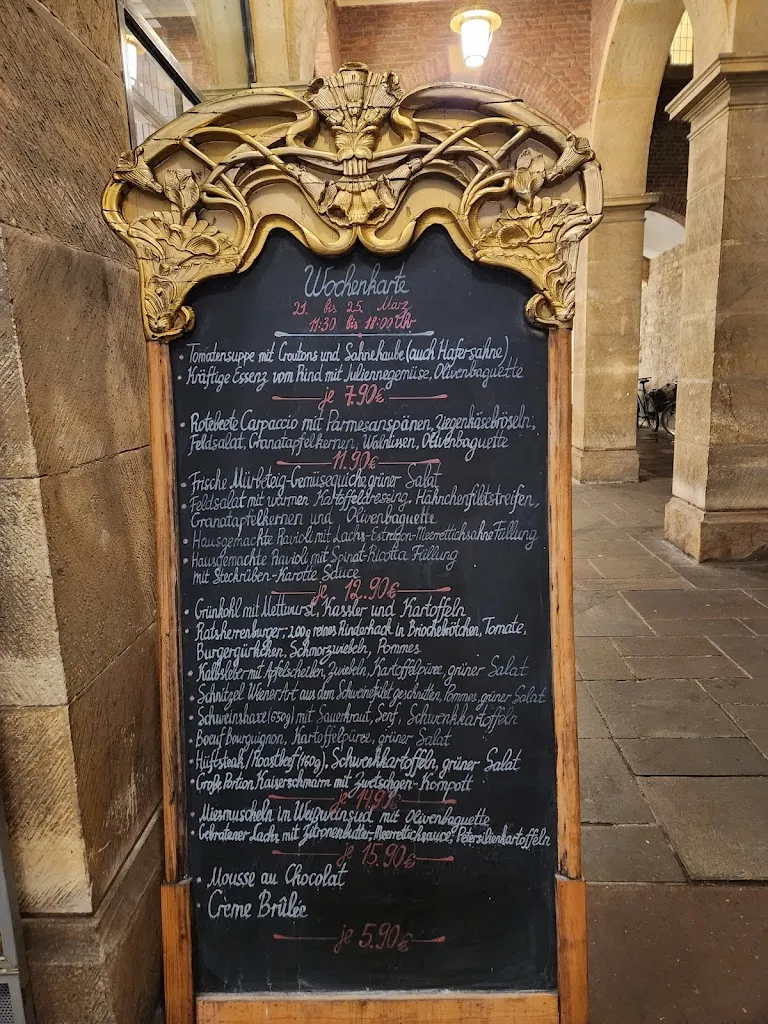 Wochenkarte
21. bis 25. März
11:30 bis 18:00 Uhr
• Tomatensuppe mit Croutons und Sahnehaube (auch Hafersahne)
• Kräftige Essenz vom Rind mit Juliennegemüse, Olivenbaguette
je 7.90€
• Rotebeete Carpaccio mit Parmesanspänen, Ziegenkäsebröseln,
Feldsalat, Granatapfelkernen, Walnüssen, Olivenbaguette
11.90€
• Frische Mürbeteig-Gemüsequiche, grüner Salat
Feldsalat mit warmen Kartoffeldressing, Hähnchenfiletstreifen,
Granatapfelkernen und Olivenbaguette
• Hausgemachte Ravioli mit Lachs-Estragon-Meerrettichsahne Füllung
• Hausgemachte Ravioli mit Spinat-Ricotta Füllung
mit Steckrüben-Karotte Sauce
je 12.90€
• Grünkohl mit Mettwurst, Kassler und Kartoffeln
• Ratsherrenburger: 200g reines Rinderhack in Briochebrötchen, Tomate,
Burgergürkchen, Schmorzwiebeln, Pommes
• Kalbsleber mit Apfelscheiben, Zwiebeln, Kartoffelpüree, grüner Salat
• Schnitzel Wiener Art aus dem Schweinefilet geschnitten, Pommes, grüner Salat
• Schweinshaxe (650g) mit Sauerkraut, Senf, Schwenkkartoffeln
Boeuf Bourguignon, Kartoffelpüree, grüner Salat
• Hüftsteak/Roastbeef (160g), Schwenkkartoffeln, grüner Salat
• Große Portion Kaiserschmarrn mit Zwetschgen-Kompott
je 14.90€
• Miesmuscheln im Weißweinsud mit Olivenbaguette
• Gebratener Lachs mit Zitronenbutter-Meerrettichsauce, Petersilienkartoffeln
je 15.90€
• Mousse au Chocolat
• Crème Brûlée
je 5.90€